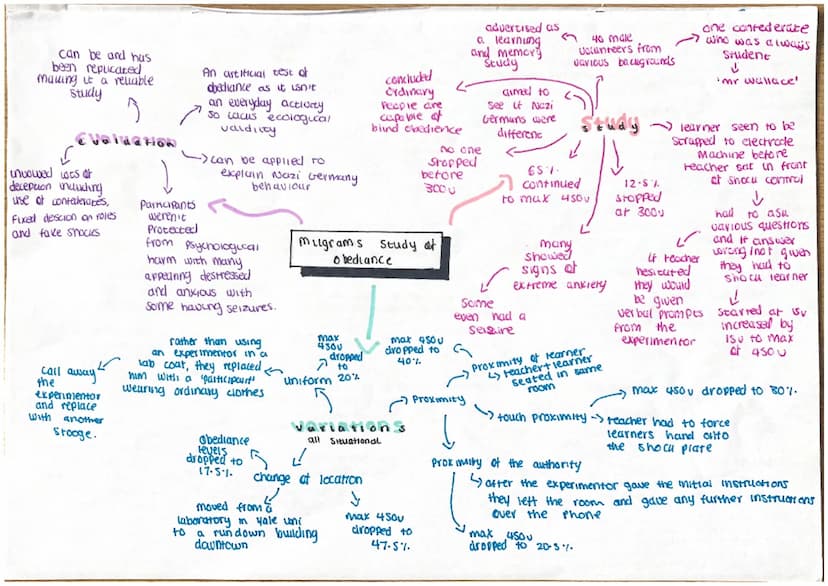 Milgrams study of
obediance
evaluation
can be and has
been replicated
making it a reliable
study
An artificial test of
obediance as it isn't
an everyday activity
so lacks ecological
validity
can be applied to
explain Nazi Germany
behaviour
Participants
weren't
Protected
from Psychological
harm with many
appearing destressed
and anxious with
some having seizures.
lots of
deception including
use of confederates,
fixed on roles
and fake shocks
study
advertised as
a learning
and memory
study
40 male
volunteers from
various backgrounds
one confederate
who was always
student
'mr Wallace'
concluded
ordinary
People are
capable of
blind obedience
aimed to
see if Nazi
Germans were
different
no one
stopped
before
300v
65%
continued
to max 450v
12.5%
stopped
at 300v
many
showed
signs of
extreme anxiety
Some
even had a
Seizure
learner seen to be
strapped to electrode
Machine before
teacher sat in front
of shock control
had to ask
various questions
and if answer
wrong/not given
they had to
shock learner
Started at 15v
increased by
15v to max
of 450v
if teacher
hesitated
they would
be given
verbal prompts
from the
experimentor
variations
all situational
uniform
max
450v
dropped
to
20%
rather than using
an experimentor in a
lab coat, they replaced
him with a 'participant'
wearing ordinary clothes
call away
the
experimentor
and replace
with another
stooge.
change of location
obediance
levels
dropped to
17.5%
moved from a
laboratory in yale uni
to a rundown building
downtown
max 450v
dropped to
47.5%
Proximity
Proximity of learner
teacher + learner
seated in same
room
max 450v
dropped to
40%
touch proximity
max 450v dropped to 30%
teacher had to force
learners hand onto
the shock plate
Proximity of the authority
after the experimentor gave the initial instructions
they left the room and gave any further instructions
over the phone
max 450v
dropped to 20.5%